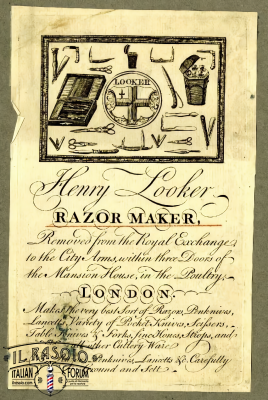 LOOKER
Henry Looker,
RAZOR MAKER,
Removed from the Royal Exchange
to the City Arms, within three Doors of
the Mansion House, in the Poultry,
LONDON.
Makes the very best Sort of Razors, Penknives,
Lancets, Variety of Pocket Knives, Scissers,
Table Knives & Forks, fine Hones, Strops, and
all other Cutlery Ware
Penknives, Lancetts &c. Carefully
Ground and Sett
IL RASOIO
ITALIAN FORUM